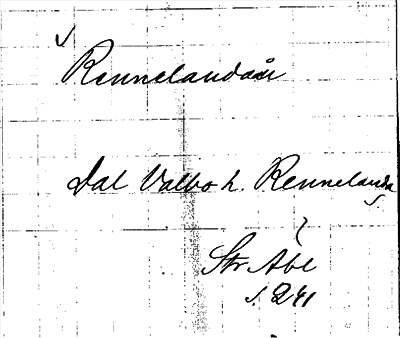 Rennelandaån
Dal Valbo h. Rennelanda
s.
Str Åbl
s. 241